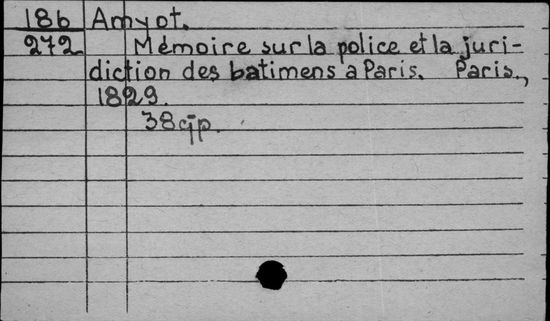 186 Amyot.
272 Mémoire sur la police et la juri-
diction des batimens a Paris. Paris.,
1829.
38 p.